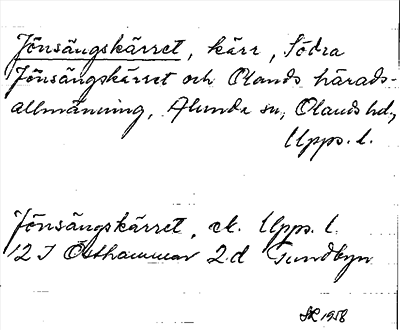 Jönsängskärret, kärr, Södra
Jönsängskärret och Olands härads-
allmänning, Alunda sn, Olands hd,
Upps. l.
Jönsängskärret, ek. Upps. l.
12 I Östhammar 2.d Gundbyn
1958